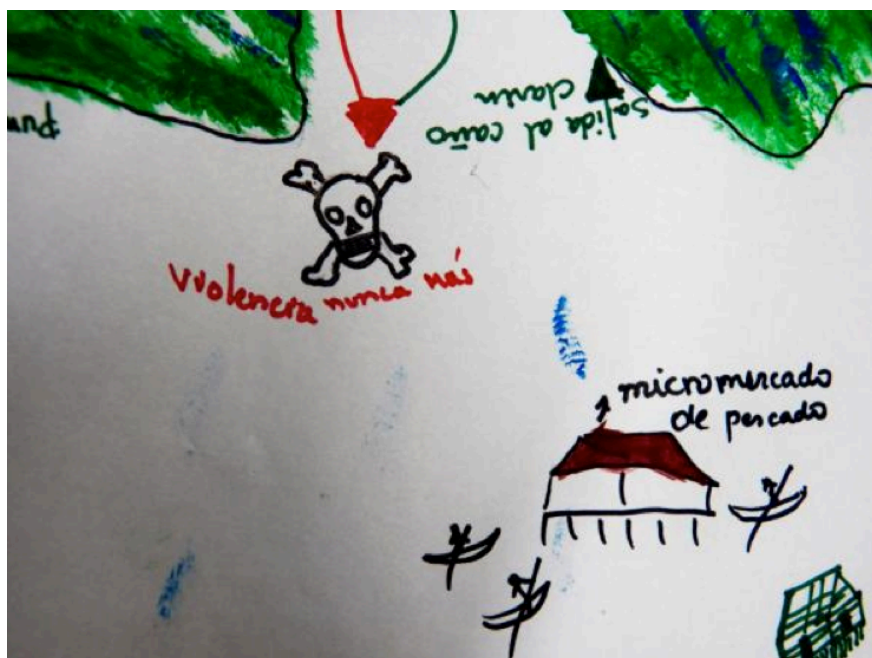 salida al caño
clarin
violencia nunca más
micromercado
de pescado